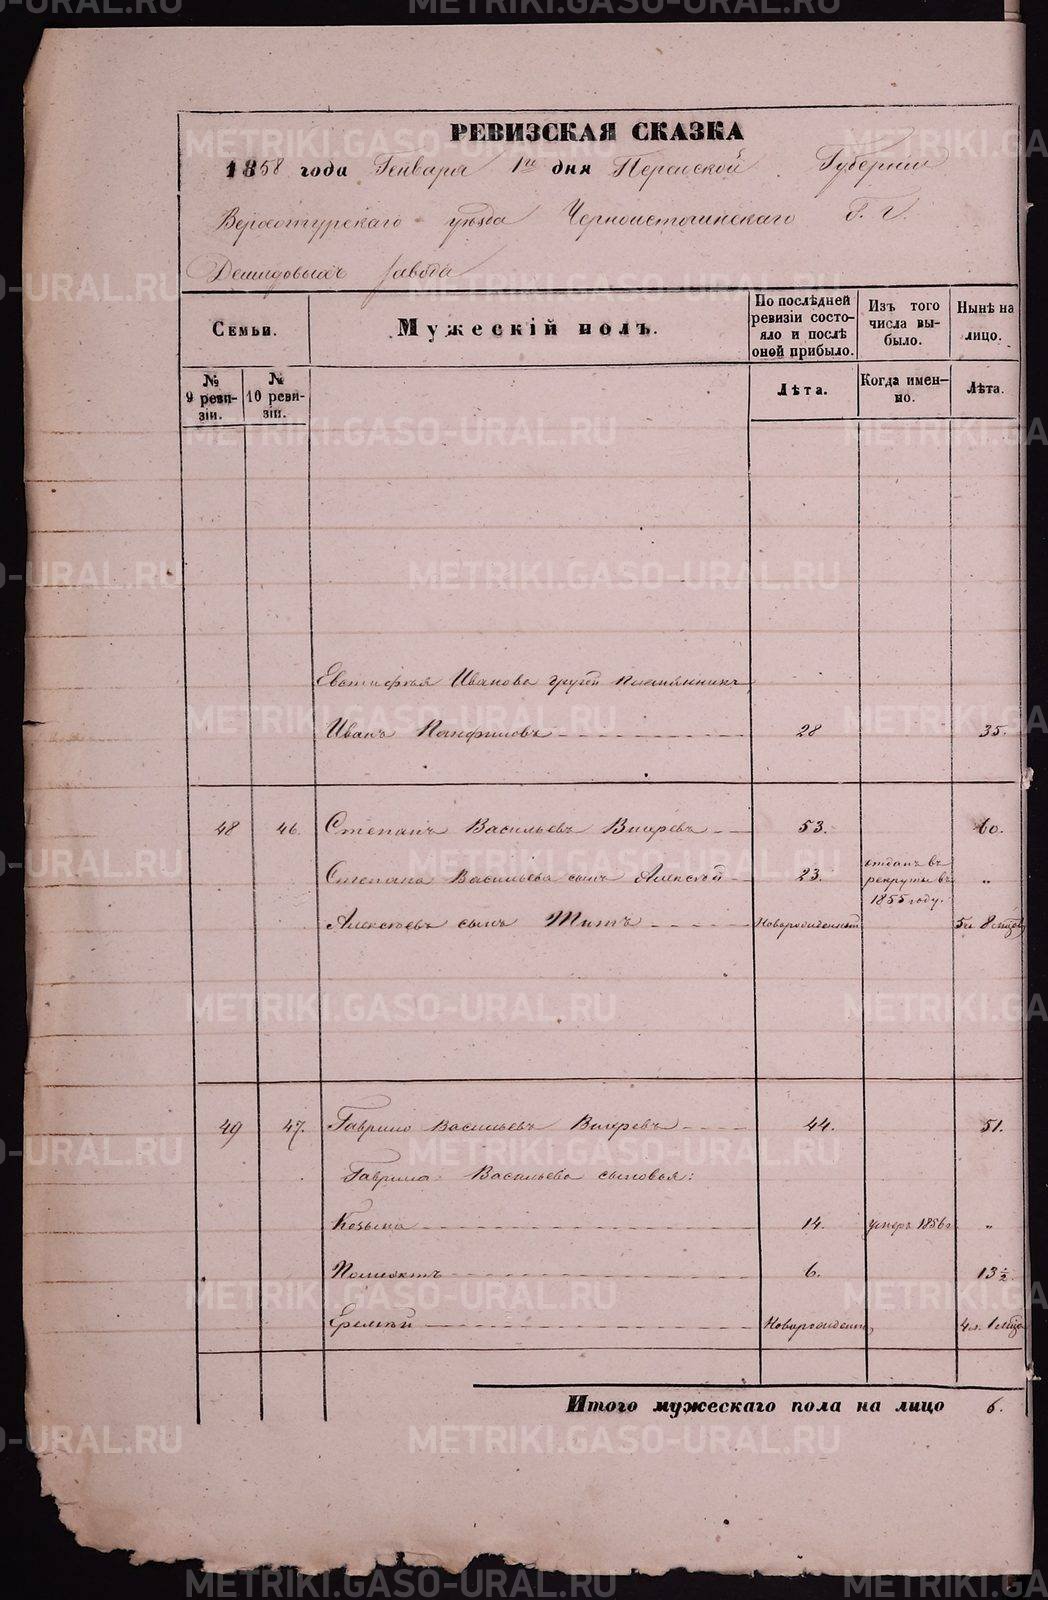 РЕВИЗСКАЯ СКАЗКА
1858 года Генваря 1го дня Пермской Губернии
Верхотурскаго уѣзда Черноисточинскаго Г. г.
Демидовыхъ завода
Семьи.
Мужескій полъ.
По послѣдней ревизіи состояло и послѣ оной прибыло.
Изъ того числа выбыло.
Нынѣ на лицо.
№ 9 ревизіи.
№ 10 ревизіи.
Лѣта.
Когда именно.
Лѣта.
Евстифѣя Иванова другой племянникъ
Иванъ Панфиловъ 28 35.
48 46. Степанъ Васильевъ 53. 60.
Степана Васильева сынъ Алексѣй 23. отданъ въ рекруты въ 1855 году. „
Алексѣевъ сынъ Титъ Новорожденный 5 и 8 мцовъ
49 47. Гаврило Васильевъ 44. 51.
Гаврила Васильева сыновья:
Козьма 14. умеръ 1856 г „
Полиектъ 6. 13 ½.
Еремѣй Новорожден. 4 л. 1 мцъ
Итого мужескаго пола на лицо 6.
METRIKI.GASO-URAL.RU